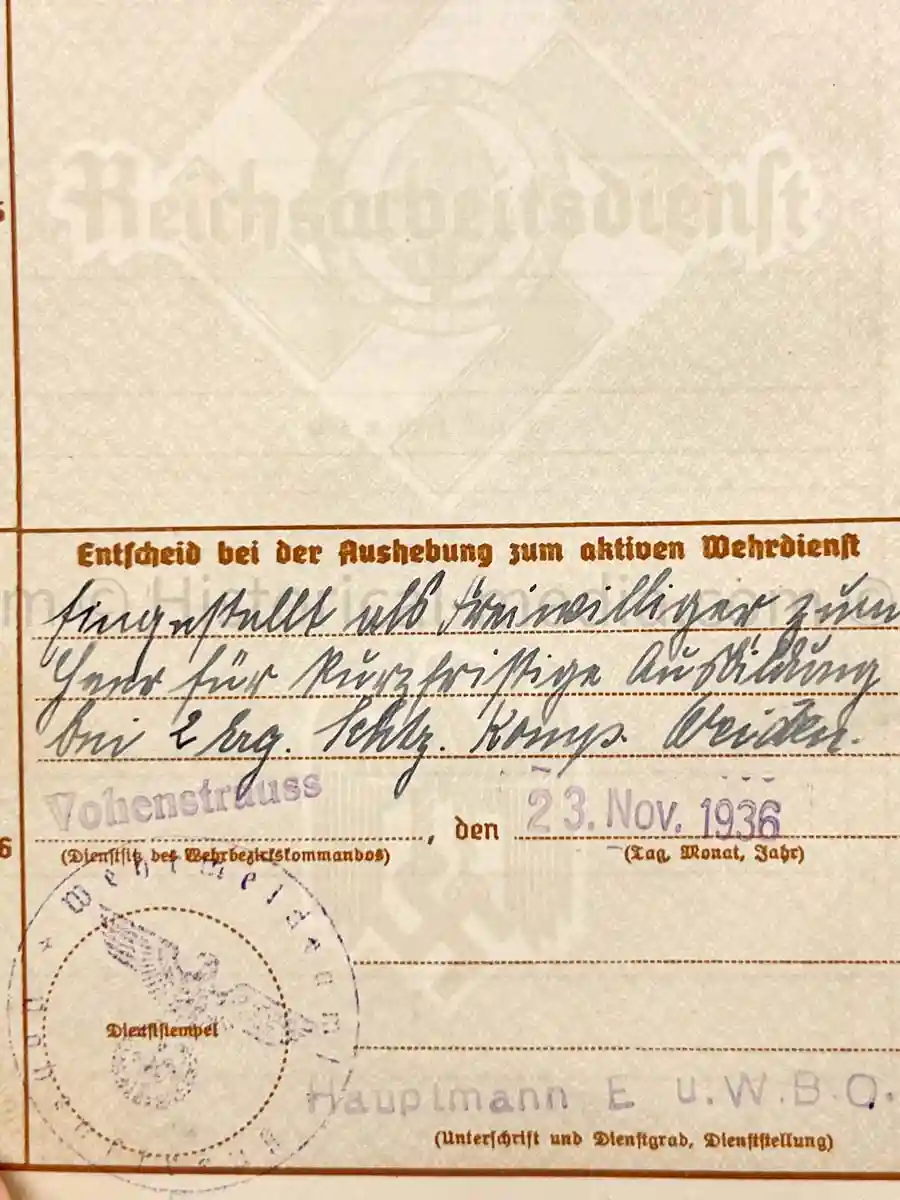 Reichsarbeitsdienst
Entscheid bei der Aushebung zum aktiven Wehrdienst
Eingestellt als Freiwilliger zum
Heer für kurzfristige Ausbildung
bei 2 Erg. Schtz. Komp. Weiden.
Vohenstrauss, den 23. Nov. 1936
(Dienstsitz des Wehrbezirkskommandos) (Tag, Monat, Jahr)
6
Wehrmeldeamt
Dienststempel
Hauptmann E u. W.B.O.
(Unterschrift und Dienstgrad, Dienststellung)